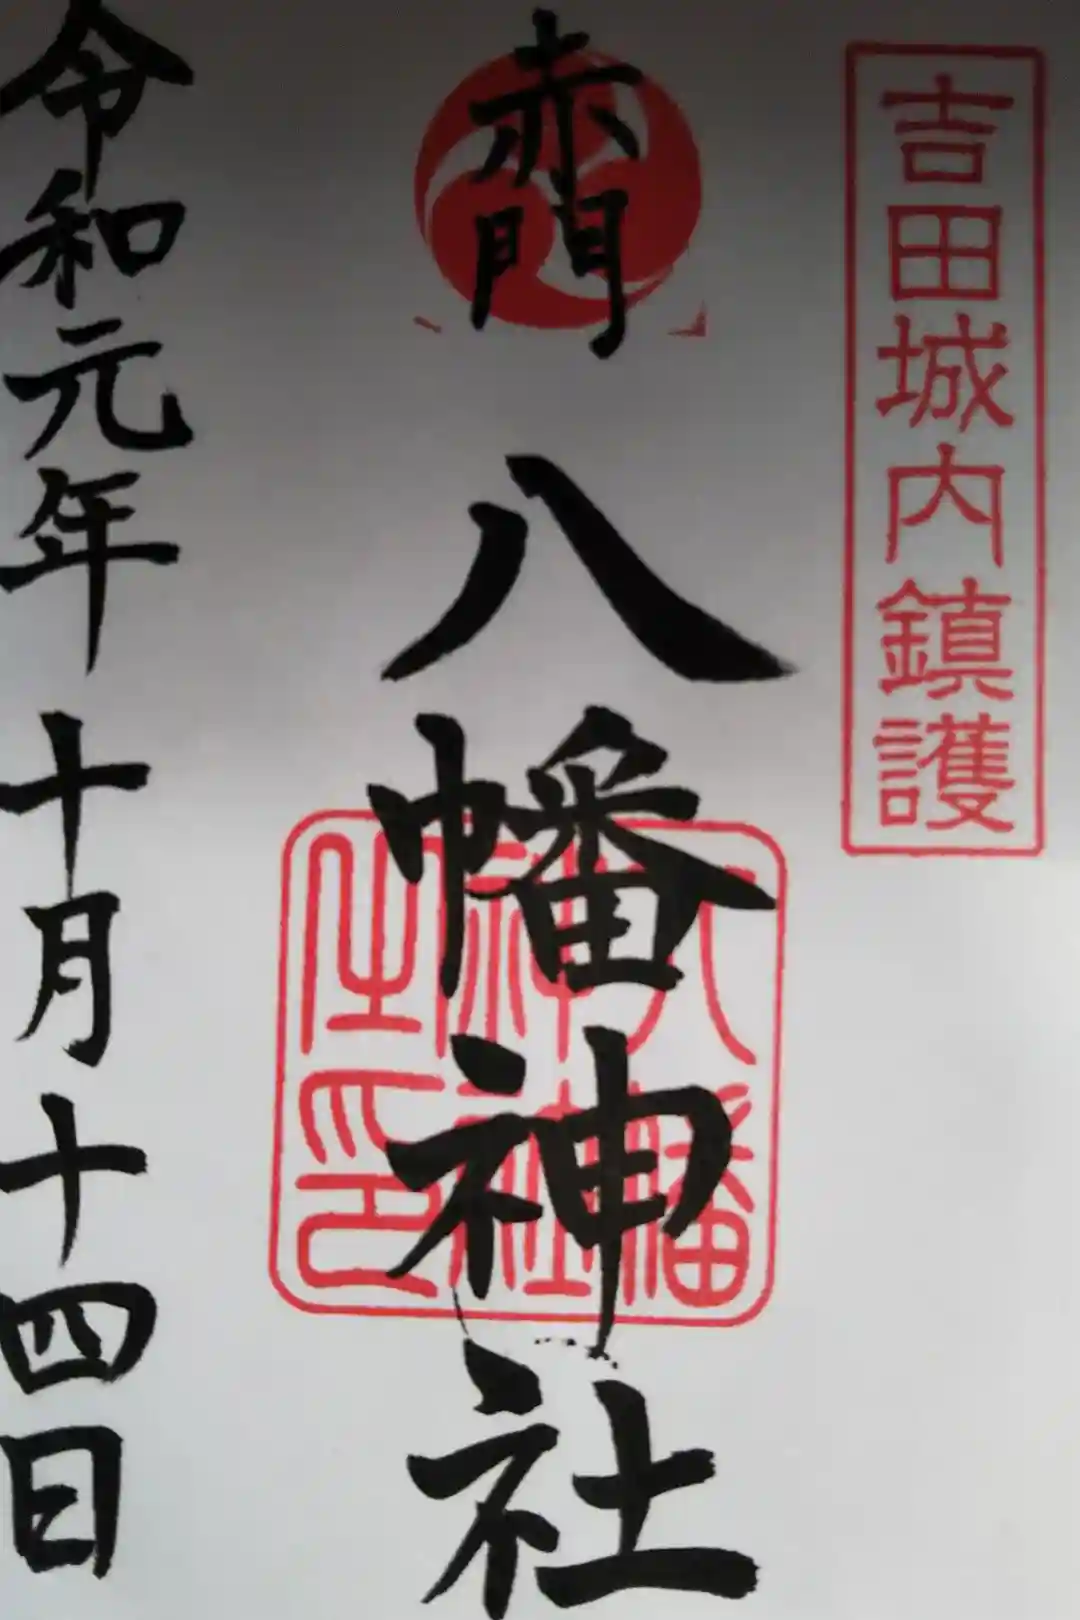 吉田城内鎮護
赤門
八幡神社
八幡
神社
之印
令和元年十月十四日